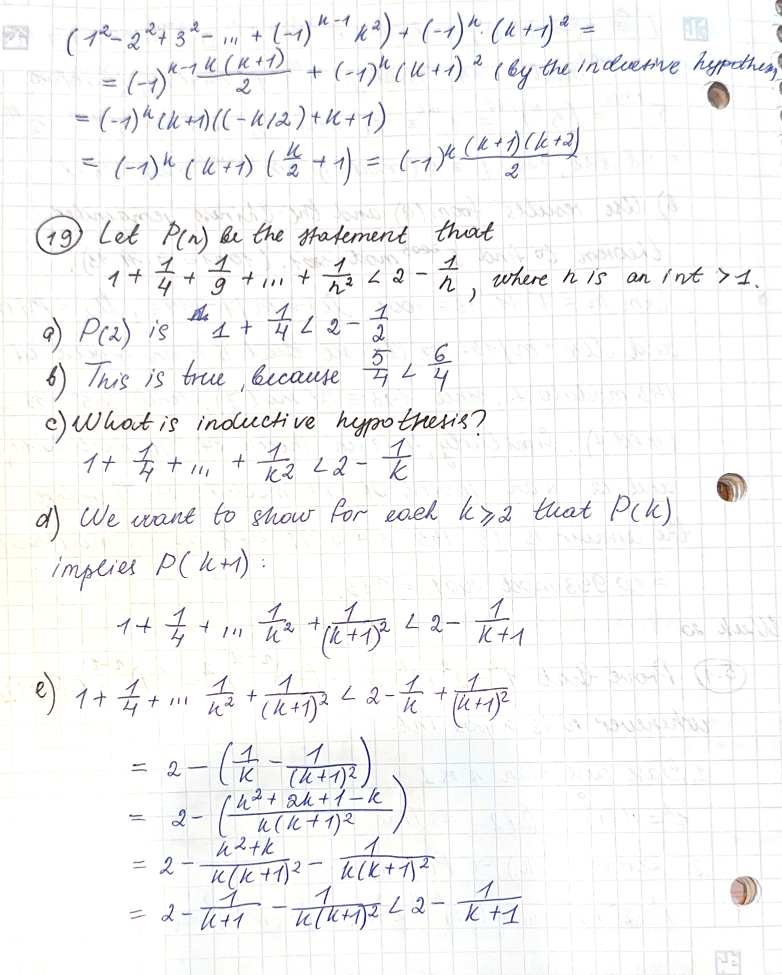 (1² - 2² + 3² - ... + (-1)^(k-1) k²) + (-1)^k · (k+1)² =
= (-1)^(k-1) k(k+1)/2 + (-1)^k (k+1)² (by the inductive hypothes
= (-1)^k (k+1)((-k/2) + k + 1)
= (-1)^k (k+1) (k/2 + 1) = (-1)^k (k+1)(k+2)/2
19 Let P(n) be the statement that
1 + 1/4 + 1/9 + ... + 1/n² < 2 - 1/n, where n is an int > 1.
a) P(2) is 1 + 1/4 < 2 - 1/2
b) This is true, because 5/4 < 6/4
c) What is inductive hypothesis?
1 + 1/4 + ... + 1/k² < 2 - 1/k
d) We want to show for each k ≥ 2 that P(k)
implies P(k+1):
1 + 1/4 + ... 1/k² + 1/(k+1)² < 2 - 1/(k+1)
e) 1 + 1/4 + ... 1/k² + 1/(k+1)² < 2 - 1/k + 1/(k+1)²
= 2 - (1/k - 1/(k+1)²)
= 2 - ((k² + 2k + 1 - k)/(k(k+1)²))
= 2 - (k² + k)/(k(k+1)²) - 1/(k(k+1)²)
= 2 - 1/(k+1) - 1/(k(k+1)²) < 2 - 1/(k+1)